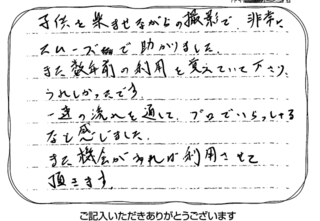 子供を楽ませながらの撮影で 非常に
スムーズで助かりました。
また数年前の利用を覚えていて下さり、
うれしかったです。
一連の流れを通して、プロでいらっしゃる
なと感じました。
また機会があれば利用させて
頂きます。
ご記入いただきありがとうございます